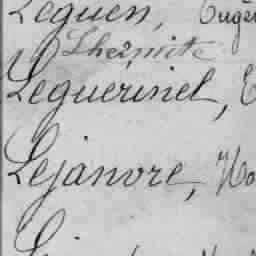 Leguen, Eugè
Lhermitte
Leguerinel, E
Lejanvre, No